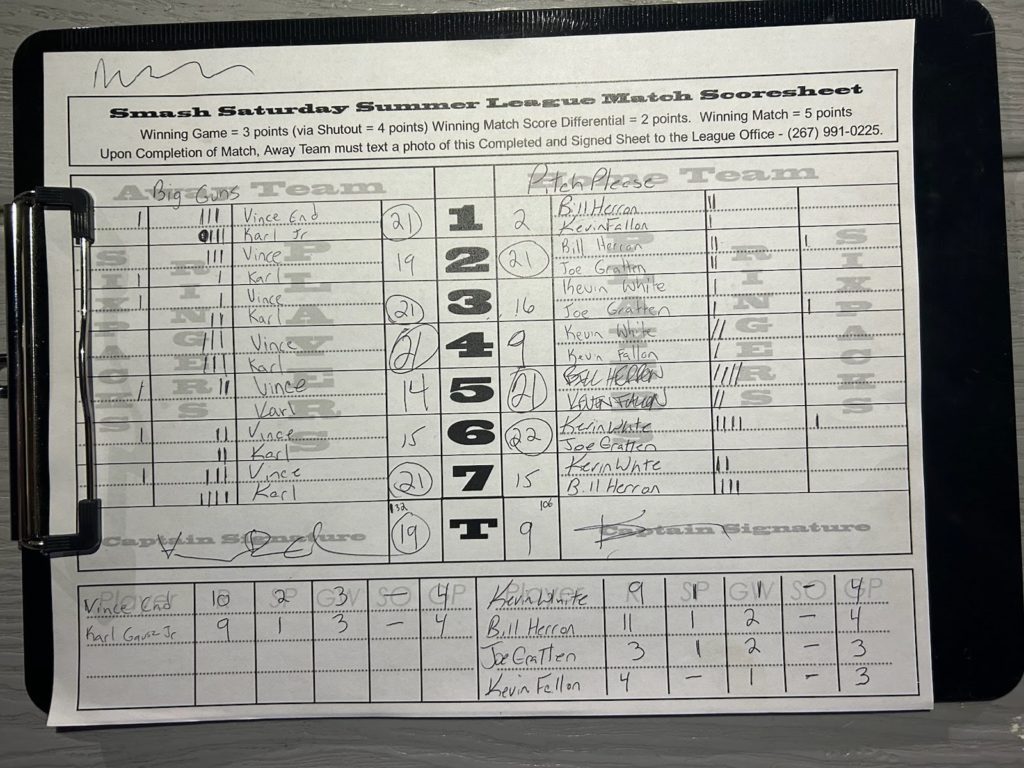 Smash Saturday Summer League Match Scoresheet
Winning Game = 3 points (via Shutout = 4 points) Winning Match Score Differential = 2 points. Winning Match = 5 points
Upon Completion of Match, Away Team must text a photo of this Completed and Signed Sheet to the League Office - (267) 991-0225.
Away Team Home Team
Big Guns Pitch Please
SIXPACKS RINGERS PLAYERS PLAYERS RINGERS SIXPACKS
Vince End 21 1 2 Bill Herron
Karl Jr Kevin Fallon
Vince 19 2 21 Bill Herron
Karl Joe Gratten
Vince 21 3 16 Kevin White
Karl Joe Gratten
Vince 21 4 9 Kevin White
Karl Kevin Fallon
Vince 14 5 21 BILL HERRON
Karl KEVIN FALLON
Vince 15 6 22 Kevin White
Karl Joe Gratten
Vince 21 7 15 Kevin White
Karl Bill Herron
132 106
Captain Signature 19 T 9 Captain Signature
Player R SP GW SO GP Player R SP GW SO GP
Vince End 10 2 3 – 4 Kevin White 9 1 1 – 4
Karl Gausz Jr 9 1 3 – 4 Bill Herron 11 1 2 – 4
Joe Gratten 3 1 2 – 3
Kevin Fallon 4 – 1 – 3